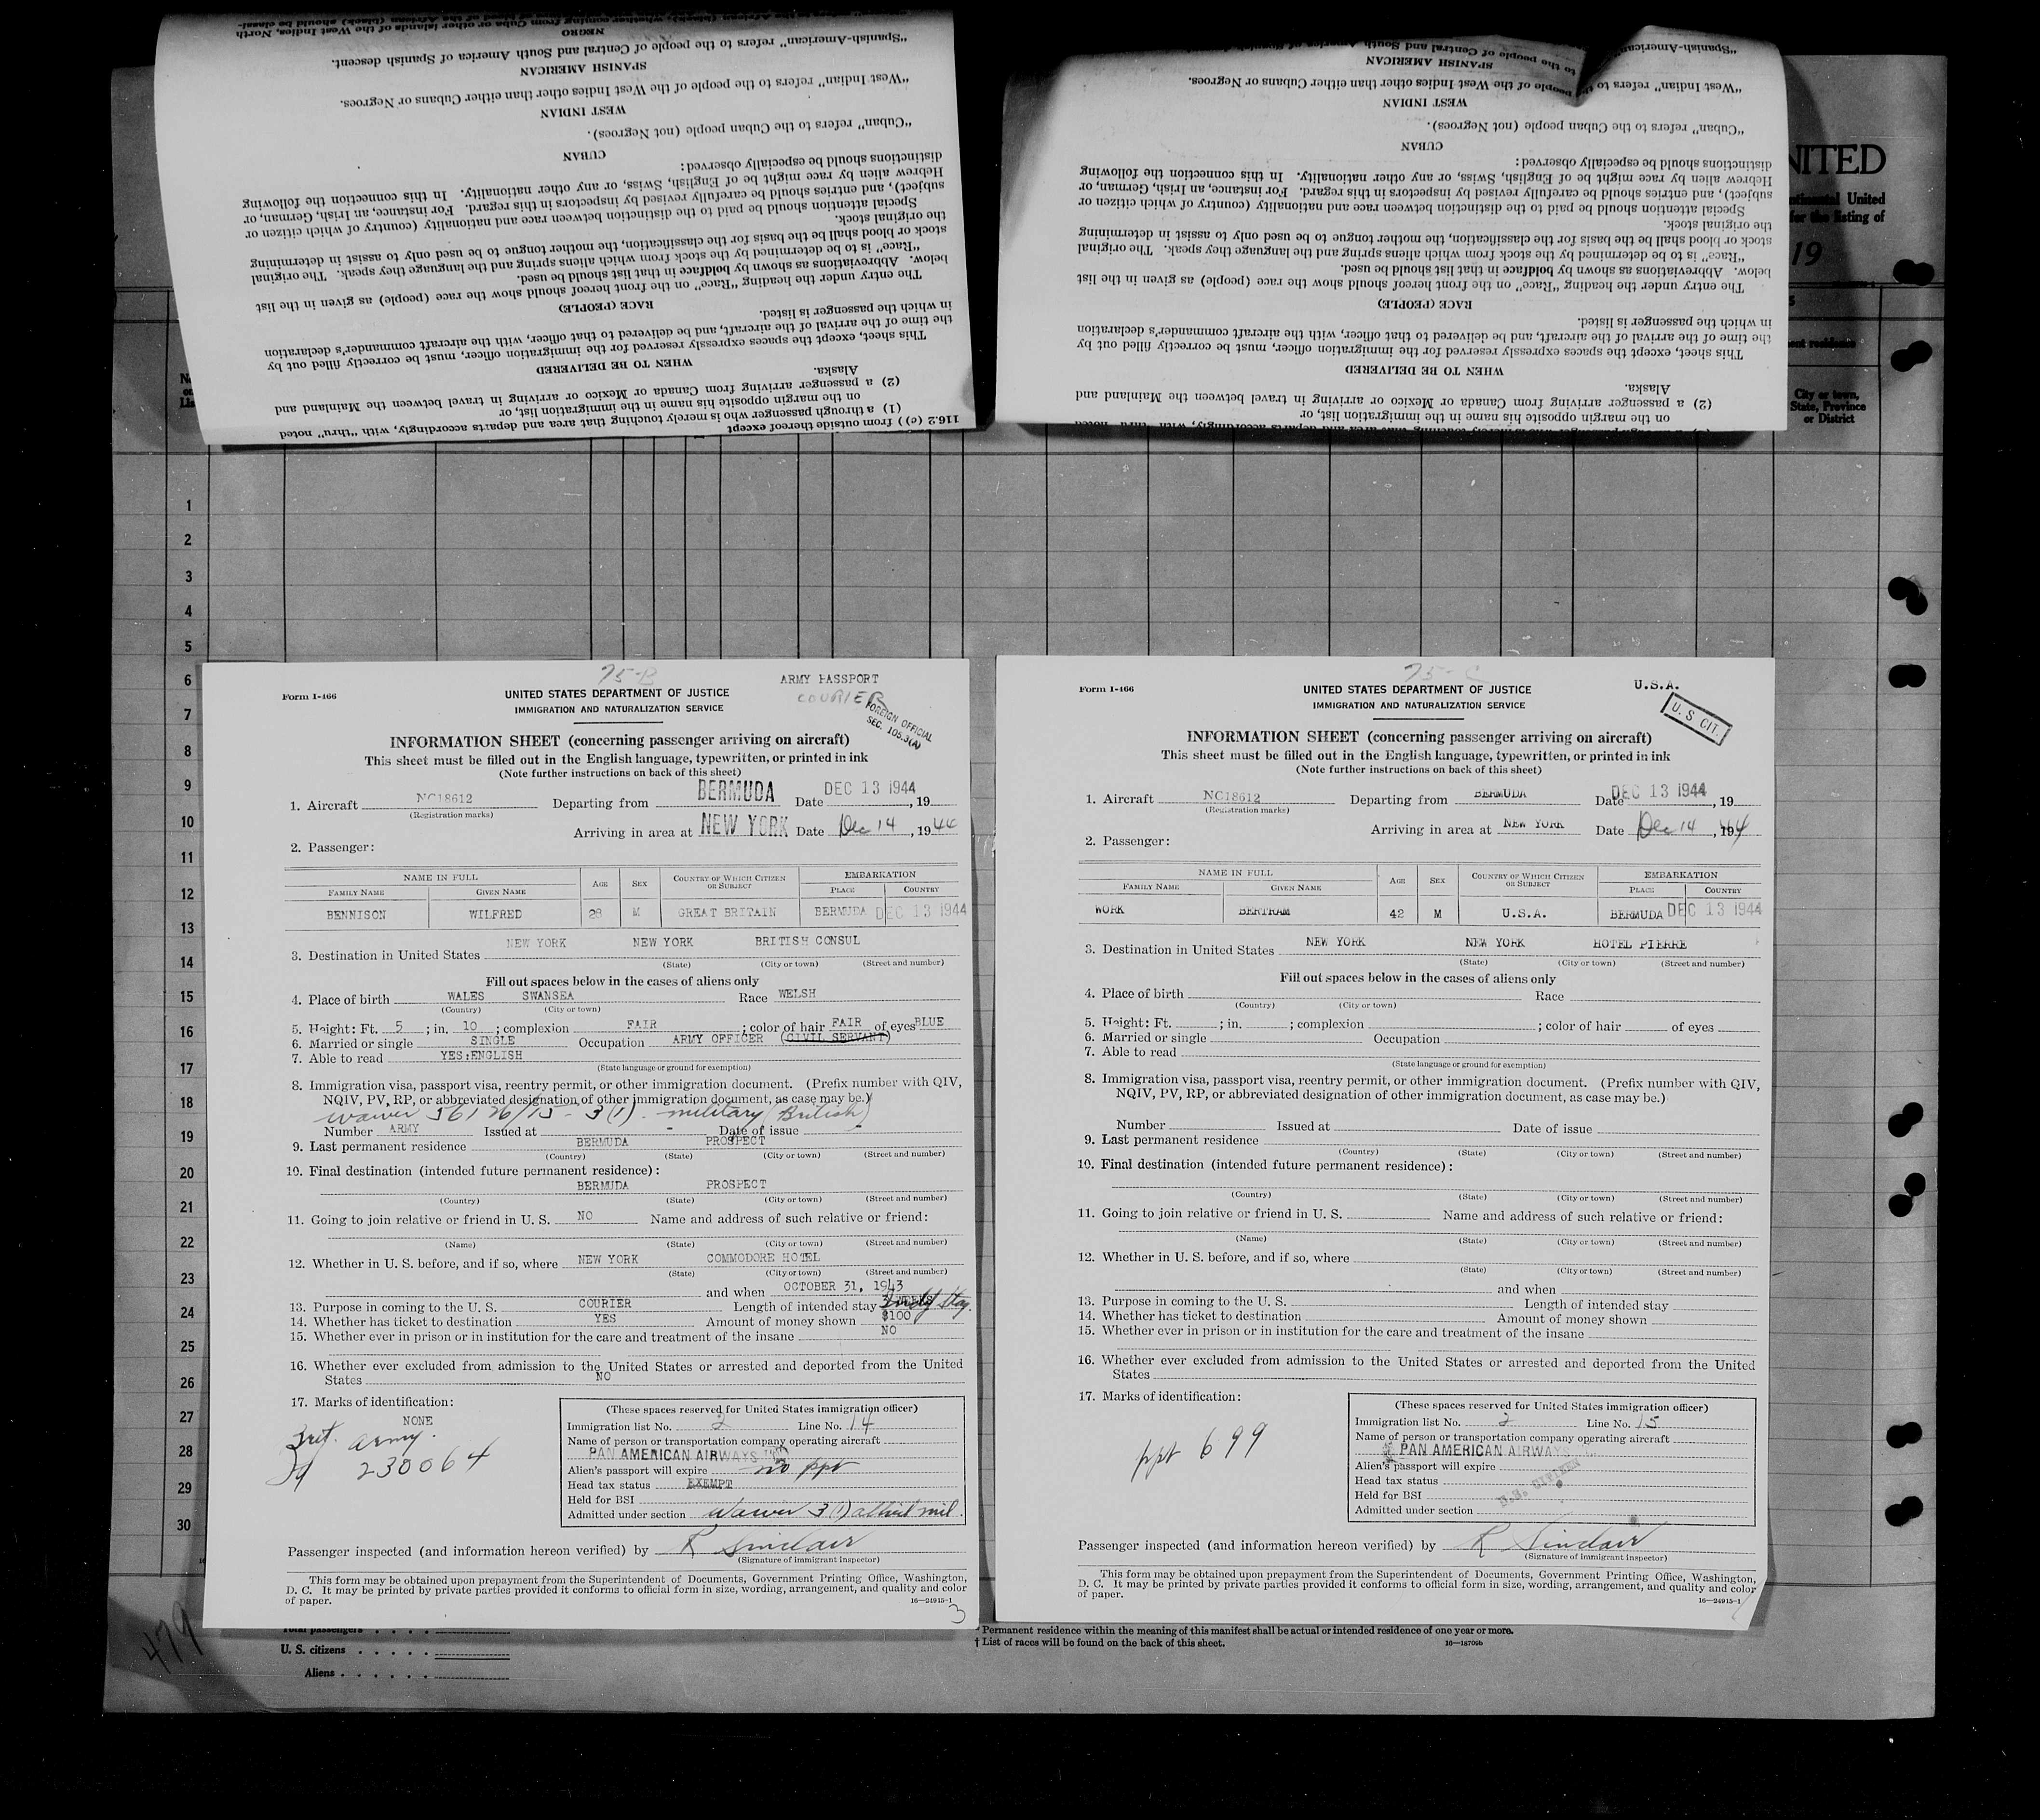 NEGRO
"Spanish-American" refers to the people of Central and South America of Spanish descent.
SPANISH AMERICAN
"West Indian" refers to the people of the West Indies other than either Cubans or Negroes.
WEST INDIAN
"Cuban" refers to the Cuban people (not Negroes).
CUBAN
distinctions should be especially observed:
Hebrew alien by race might be of English, Swiss, or any other nationality. In this connection the following
subject), and entries should be carefully revised by inspectors in this regard. For instance, an Irish, German, or
Special attention should be paid to the distinction between race and nationality (country of which citizen or
the original stock.
stock or blood shall be the basis for the classification, the mother tongue to be used only to assist in determining
"Race" is to be determined by the stock from which aliens spring and the language they speak. The original
below. Abbreviations as shown by boldface in that list should be used.
The entry under the heading "Race" on the front hereof should show the race (people) as given in the list
RACE (PEOPLE)
in which the passenger is listed.
the time of the arrival of the aircraft, and be delivered to that officer, with the aircraft commander's declaration
This sheet, except the spaces expressly reserved for the immigration officer, must be correctly filled out by
WHEN TO BE DELIVERED
Alaska.
(2) a passenger arriving from Canada or Mexico or arriving in travel between the Mainland and
on the margin opposite his name in the immigration list, or
(1) a through passenger who is merely touching that area and departs accordingly, with "thru" noted
116.2 (c)) from outside thereof except
"Spanish-American"
to the people of Central and South
SPANISH AMERICAN
"West Indian" refers to the people of the West Indies other than either Cubans or Negroes.
WEST INDIAN
"Cuban" refers to the Cuban people (not Negroes).
CUBAN
distinctions should be especially observed:
Hebrew alien by race might be of English, Swiss, or any other nationality. In this connection the following
subject), and entries should be carefully revised by inspectors in this regard. For instance, an Irish, German, or
Special attention should be paid to the distinction between race and nationality (country of which citizen or
the original stock.
stock or blood shall be the basis for the classification, the mother tongue to be used only to assist in determining
"Race" is to be determined by the stock from which aliens spring and the language they speak. The original
below. Abbreviations as shown by boldface in that list should be used.
The entry under the heading "Race" on the front hereof should show the race (people) as given in the list
RACE (PEOPLE)
in which the passenger is listed.
the time of the arrival of the aircraft, and be delivered to that officer, with the aircraft commander's declaration
This sheet, except the spaces expressly reserved for the immigration officer, must be correctly filled out by
WHEN TO BE DELIVERED
Alaska.
(2) a passenger arriving from Canada or Mexico or arriving in travel between the Mainland and
on the margin opposite his name in the immigration list, or
NITED
United
for the listing of
19
City or town,
State, Province
or District
1
2
3
4
5
6
7
8
9
10
11
12
13
14
15
16
17
18
19
20
21
22
23
24
25
26
27
28
29
30
75-B
ARMY PASSPORT
COURIER
FOREIGN OFFICIAL
SEC. 105.3(A)
Form I-466
UNITED STATES DEPARTMENT OF JUSTICE
IMMIGRATION AND NATURALIZATION SERVICE
INFORMATION SHEET (concerning passenger arriving on aircraft)
This sheet must be filled out in the English language, typewritten, or printed in ink
(Note further instructions on back of this sheet)
1. Aircraft NC18612 Departing from BERMUDA Date DEC 13 1944, 19
(Registration marks)
Arriving in area at NEW YORK Date Dec 14, 1944
2. Passenger:
NAME IN FULL AGE SEX COUNTRY OF WHICH CITIZEN OR SUBJECT EMBARKATION
FAMILY NAME GIVEN NAME PLACE COUNTRY
BENNISON WILFRED 28 M GREAT BRITAIN BERMUDA DEC 13 1944
3. Destination in United States NEW YORK NEW YORK BRITISH CONSUL
(State) (City or town) (Street and number)
Fill out spaces below in the cases of aliens only
4. Place of birth WALES SWANSEA Race WELSH
(Country) (City or town)
5. Height: Ft. 5; in. 10; complexion FAIR; color of hair FAIR of eyes BLUE
6. Married or single SINGLE Occupation ARMY OFFICER (CIVIL SERVANT)
7. Able to read YES:ENGLISH
(State language or ground for exemption)
8. Immigration visa, passport visa, reentry permit, or other immigration document. (Prefix number with QIV,
NQIV, PV, RP, or abbreviated designation of other immigration document, as case may be.)
waiver 56126/15-3(1). military (British)
Number ARMY Issued at - Date of issue -
9. Last permanent residence BERMUDA PROSPECT
(Country) (State) (City or town) (Street and number)
10. Final destination (intended future permanent residence):
BERMUDA PROSPECT
(Country) (State) (City or town) (Street and number)
11. Going to join relative or friend in U. S. NO Name and address of such relative or friend:
(Name) (State) (City or town) (Street and number)
12. Whether in U. S. before, and if so, where NEW YORK COMMODORE HOTEL
(State) (City or town) (Street and number)
and when OCTOBER 31, 1943
13. Purpose in coming to the U. S. COURIER Length of intended stay
14. Whether has ticket to destination YES Amount of money shown $100
15. Whether ever in prison or in institution for the care and treatment of the insane NO
16. Whether ever excluded from admission to the United States or arrested and deported from the United
States NO
17. Marks of identification:
NONE
army.
Id 230064
(These spaces reserved for United States immigration officer)
Immigration list No. 2 Line No. 14
Name of person or transportation company operating aircraft
PAN AMERICAN AIRWAYS
Alien's passport will expire no ppt
Head tax status EXEMPT
Held for BSI
Admitted under section Waiver 3(1) allied mil.
Passenger inspected (and information hereon verified) by R Sinclair
(Signature of immigrant inspector)
This form may be obtained upon prepayment from the Superintendent of Documents, Government Printing Office, Washington,
D. C. It may be printed by private parties provided it conforms to official form in size, wording, arrangement, and quality and color
of paper.
16—24915-1
3
75-C
U.S.A.
U. S CIT.
Form I-466
UNITED STATES DEPARTMENT OF JUSTICE
IMMIGRATION AND NATURALIZATION SERVICE
INFORMATION SHEET (concerning passenger arriving on aircraft)
This sheet must be filled out in the English language, typewritten, or printed in ink
(Note further instructions on back of this sheet)
1. Aircraft NC18612 Departing from BERMUDA Date DEC 13 1944, 19
(Registration marks)
Arriving in area at NEW YORK Date Dec 14, 1944
2. Passenger:
NAME IN FULL AGE SEX COUNTRY OF WHICH CITIZEN OR SUBJECT EMBARKATION
FAMILY NAME GIVEN NAME PLACE COUNTRY
WORK BERTRAM 42 M U.S.A. BERMUDA DEC 13 1944
3. Destination in United States NEW YORK NEW YORK HOTEL PIERRE
(State) (City or town) (Street and number)
Fill out spaces below in the cases of aliens only
4. Place of birth Race
(Country) (City or town)
5. Height: Ft. ; in. ; complexion ; color of hair of eyes
6. Married or single Occupation
7. Able to read
(State language or ground for exemption)
8. Immigration visa, passport visa, reentry permit, or other immigration document. (Prefix number with QIV,
NQIV, PV, RP, or abbreviated designation of other immigration document, as case may be.)
Number Issued at Date of issue
9. Last permanent residence
(Country) (State) (City or town) (Street and number)
10. Final destination (intended future permanent residence):
(Country) (State) (City or town) (Street and number)
11. Going to join relative or friend in U. S. Name and address of such relative or friend:
(Name) (State) (City or town) (Street and number)
12. Whether in U. S. before, and if so, where
(State) (City or town) (Street and number)
and when
13. Purpose in coming to the U. S. Length of intended stay
14. Whether has ticket to destination Amount of money shown
15. Whether ever in prison or in institution for the care and treatment of the insane
16. Whether ever excluded from admission to the United States or arrested and deported from the United
States
17. Marks of identification:
ppt 699
(These spaces reserved for United States immigration officer)
Immigration list No. 2 Line No. 15
Name of person or transportation company operating aircraft
PAN AMERICAN AIRWAYS
Alien's passport will expire
Head tax status
U.S. CITIZEN
Held for BSI
Admitted under section
Passenger inspected (and information hereon verified) by R Sinclair
(Signature of immigrant inspector)
This form may be obtained upon prepayment from the Superintendent of Documents, Government Printing Office, Washington,
D. C. It may be printed by private parties provided it conforms to official form in size, wording, arrangement, and quality and color
of paper.
16—24915-1
479
Total passengers
U. S. citizens
Aliens
* Permanent residence within the meaning of this manifest shall be actual or intended residence of one year or more.
† List of races will be found on the back of this sheet.